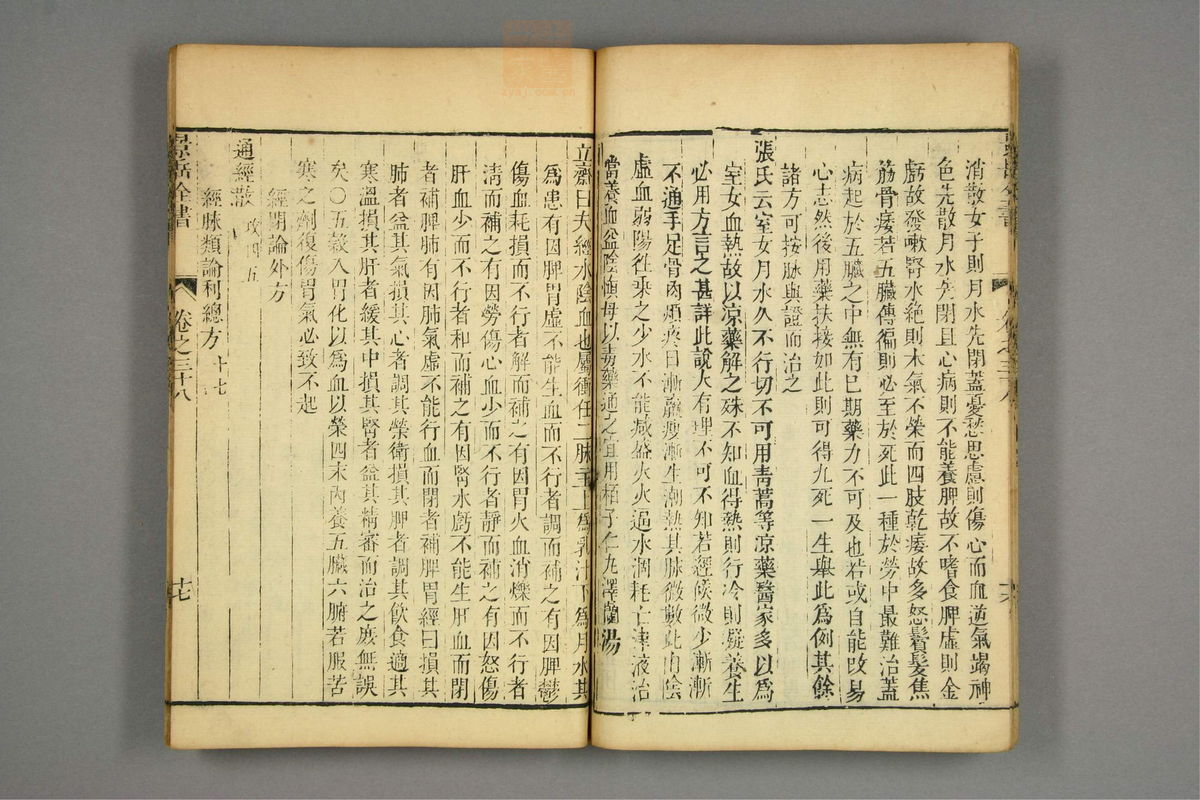 消散女子則月水先閉蓋憂愁思慮則傷心而血逆氣竭神
色先散月水先閉且心病則不能養脾故不嗜食脾虛則金
虧故發嗽腎水絕則木氣不榮而四肢乾痿故多怒鬢髮焦
筋骨痿若五臟傳徧則必至於死此一種於勞中最難治蓋
病起於五臟之中無有已期藥力不可及也若或自能改易
心志然後用藥扶接如此則可得九死一生舉此為例其餘
諸方可按脉與證而治之
張氏云室女月水久不行切不可用青蒿等凉藥醫家多以為
室女血熱故以凉藥解之殊不知血得熱則行冷則凝養生
必用方言之甚詳此說大有理不可不知若經候微少漸漸
不通手足骨肉煩疼日漸羸瘦漸生潮熱其脉微數此由陰
虛血弱陽往乘之少水不能滅盛火火逼水涸耗亡津液治
當養血益陰慎毋以毒藥通之宜用栢子仁丸澤蘭湯
立齋曰夫經水陰血也屬衝任二脉主上為乳汁下為月水其
為患有因脾胃虛不能生血而不行者調而補之有因脾鬱
傷血耗損而不行者解而補之有因胃火血消爍而不行者
清而補之有因勞傷心血少而不行者靜而補之有因怒傷
肝血少而不行者和而補之有因腎水虧不能生肝血而閉
者補脾肺有因肺氣虛不能行血而閉者補脾胃經曰損其
肺者益其氣損其心者調其榮衛損其脾者調其飲食適其
寒溫損其肝者緩其中損其腎者益其精審而治之庶無誤
矣○五穀入胃化以為血以榮四末內養五臟六腑若服苦
寒之劑復傷胃氣必致不起
經閉論外方
通經散 攻四五
經脉類論列總方 十七
景岳全書 卷之三十八 十七